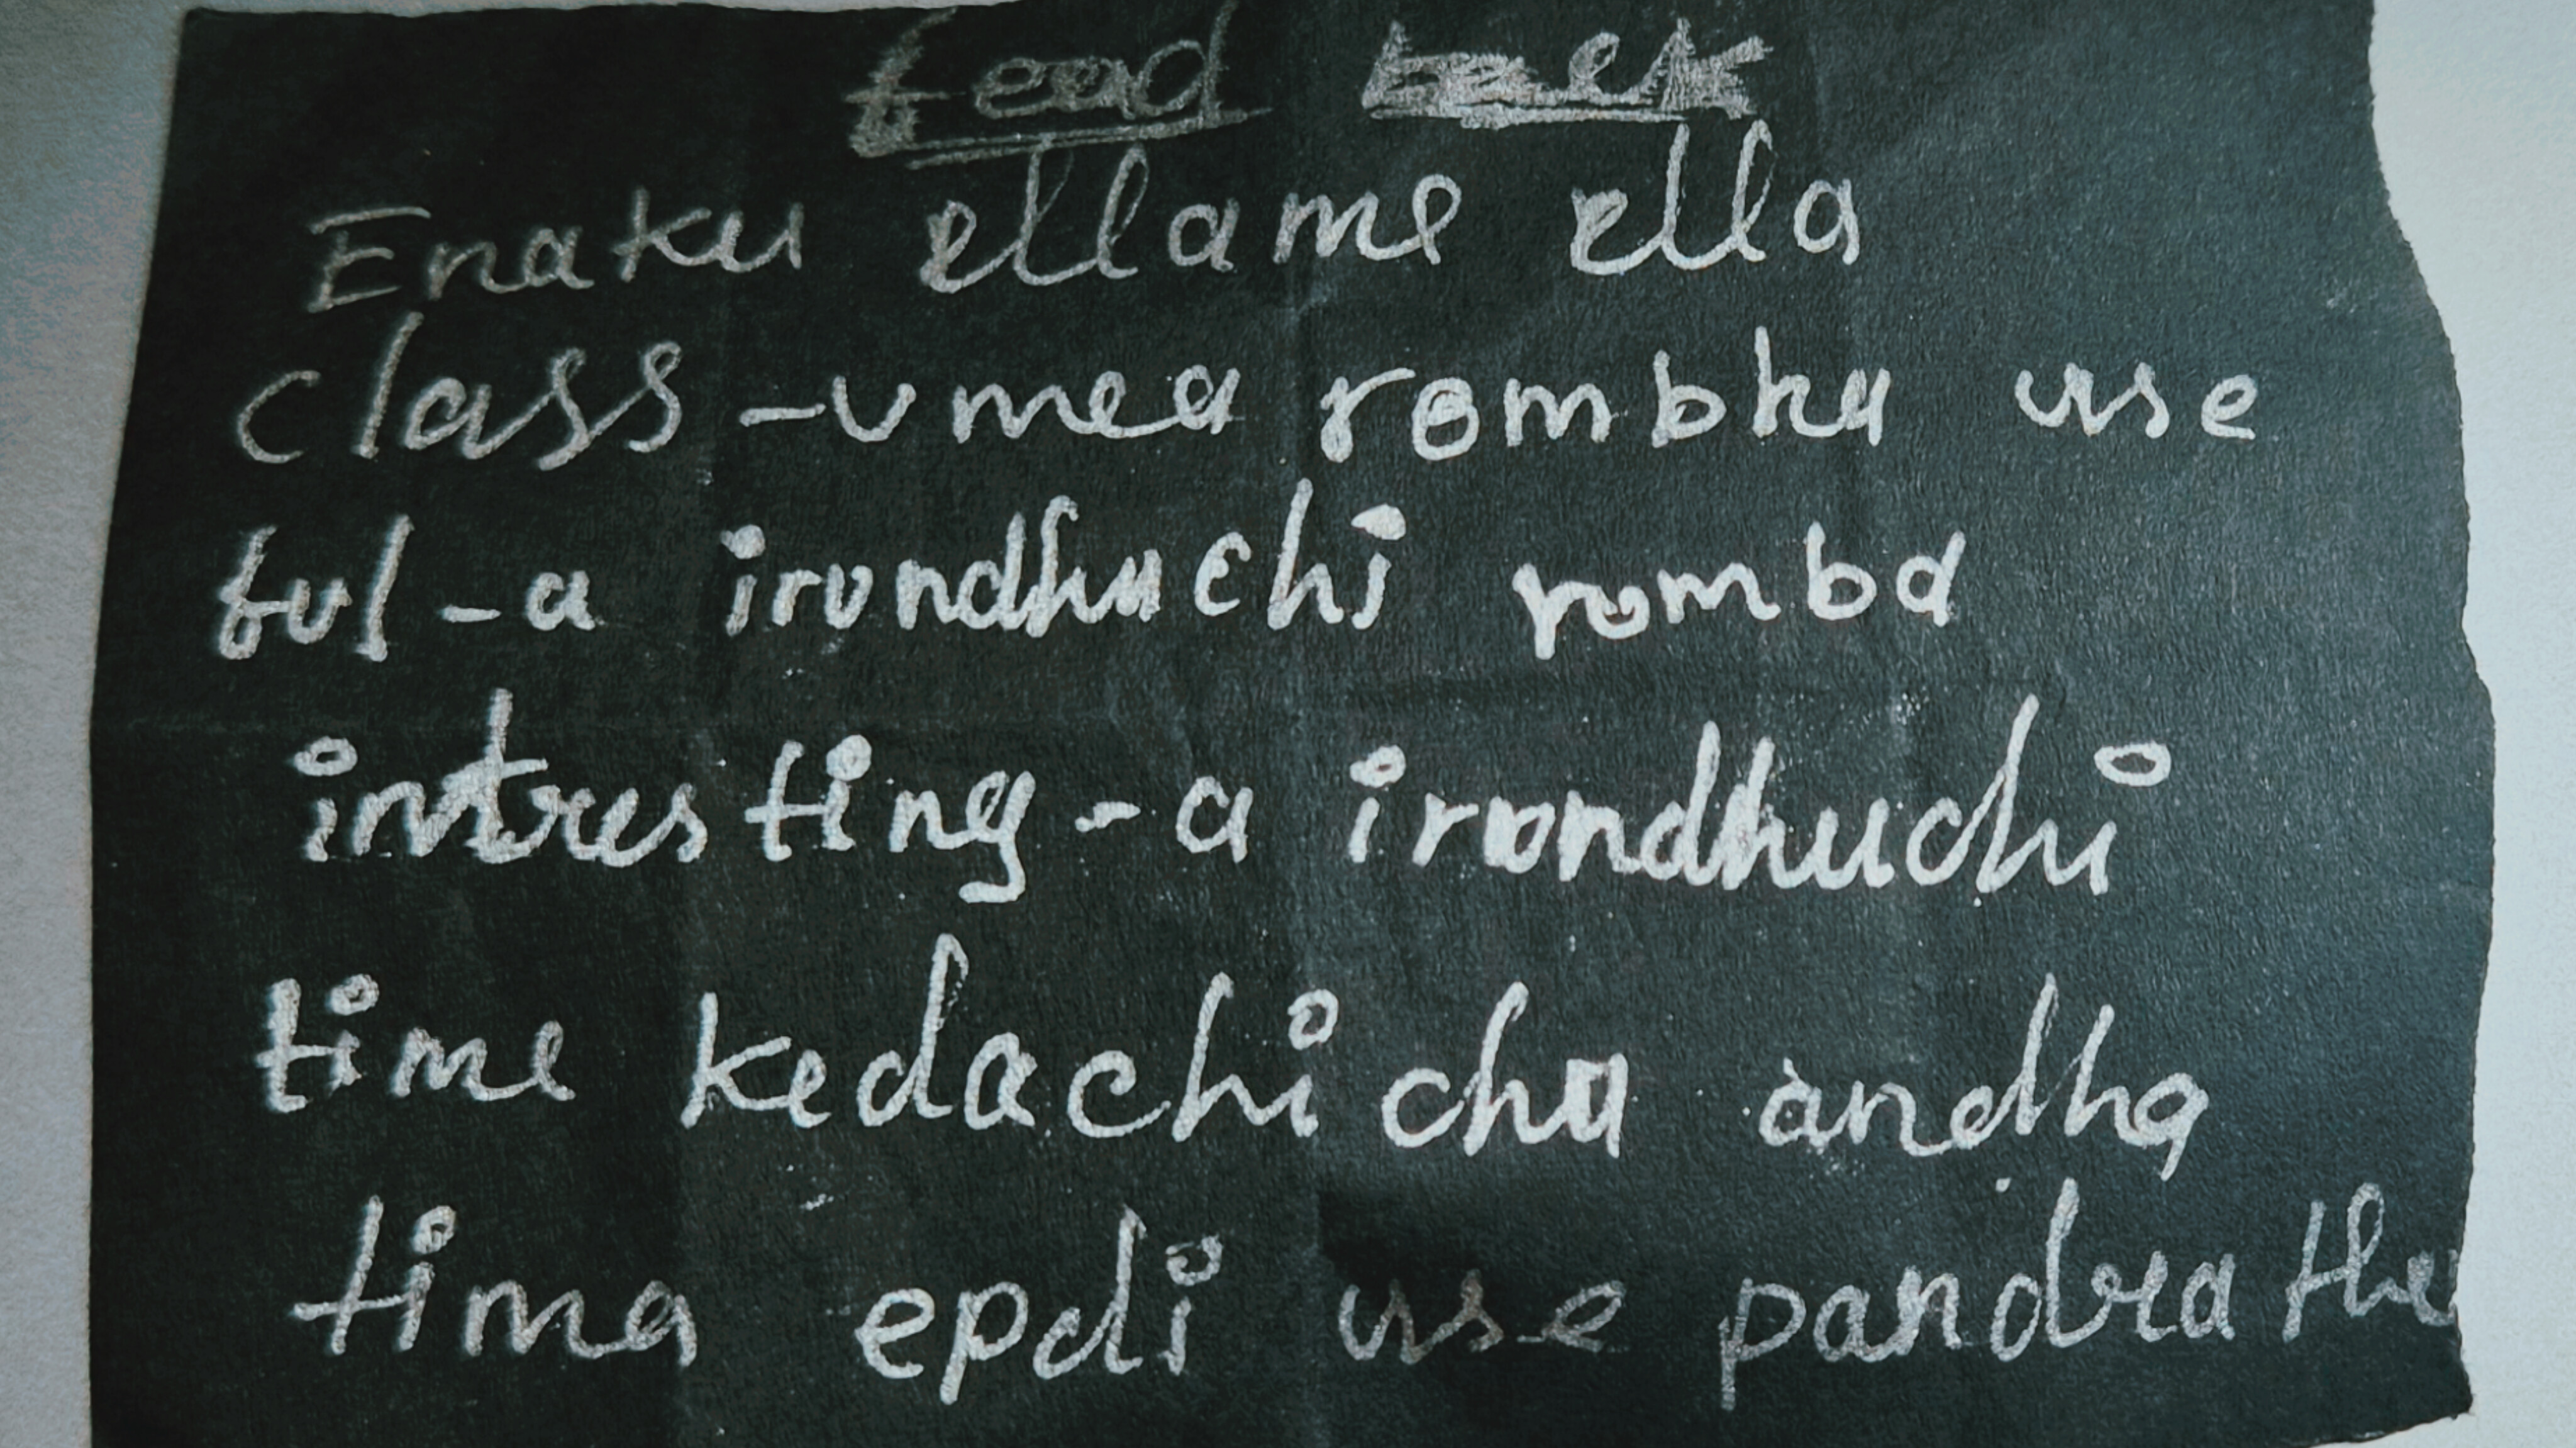 fead back
Enaku ellame ella
class-umea rombha use
ful-a irundhuchi romba
intresting-a irundhuchi
time kedachichu andha
tima epdi use pandrea the